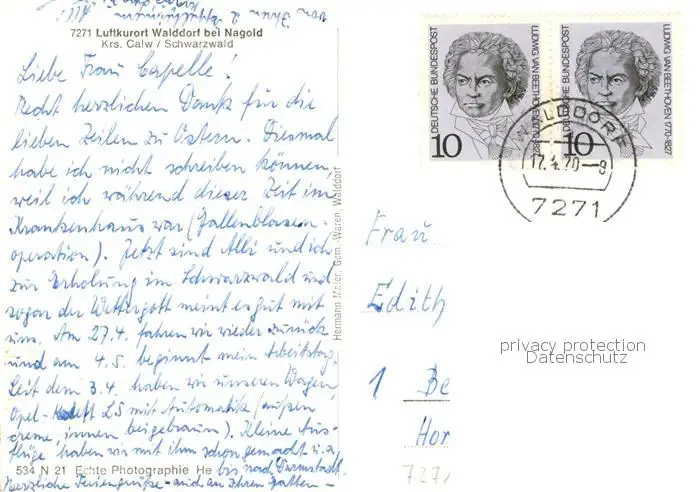 von Ihnen
7271 Luftkurort Walddorf bei Nagold
Krs. Calw / Schwarzwald
Liebe Frau Capelle!
Recht herzlichen Dank für die
lieben Zeilen zu Ostern. Diesmal
habe ich nicht schreiben können,
weil ich während dieser Zeit im
Krankenhaus war (Gallenblasen-
operation). Jetzt sind Alli und ich
zur Erholung im Schwarzwald und
sogar der Wettergott meint es gut mit
uns. Am 27.4. fahren wir wieder zurück
und am 4.5. beginnt mein Arbeitstag.
Seit dem 3.4. haben wir unseren Wagen,
Opel-Kadett LS mit Automatik (außen
creme, innen beigebraun). Kleine Aus-
flüge haben wir mit ihm schon gemacht u.a.
534 N 21 Echte Photographie He
bis nach Darmstadt.
Herzliche Feriengrüße – auch an Ihren Gatten –
Hermann Mitler, Gem.-Waren, Walddorf
DEUTSCHE BUNDESPOST
LUDWIG VAN BEETHOVEN 1770-1827
10
DEUTSCHE BUNDESPOST
LUDWIG VAN BEETHOVEN 1770-1827
10
WALDDORF
17.4.70-8
7271
Frau
Edith
privacy protection
Datenschutz
1 Be
Hor
727